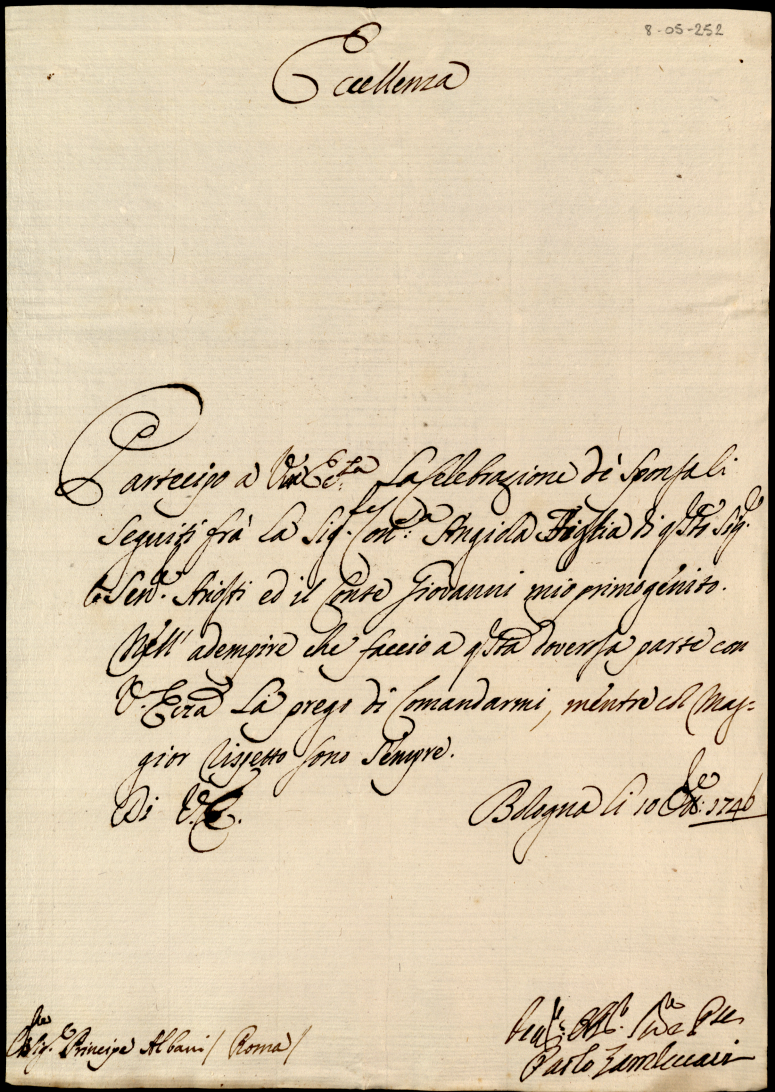 8-05-252
Eccellenza
Partecipo a V.ra Ecc.za La Celebrazione di Sponsali
Seguiti frà la Sig.ra Con.a Angiola Figlia di q.sto Sig.e
Sen.e Ariosti ed il Conte Giovanni mio primogenito.
Nell' adempire che faccio a q.sta doverosa parte con
V. Ecc.za La prego di Comandarmi, mentre col Mag-
gior Rispetto sono Sempre.
Di V.E.
Bologna li 10 Ott.e 1746
Sig.e Principe Albani / Roma /
Paolo Zambeccari